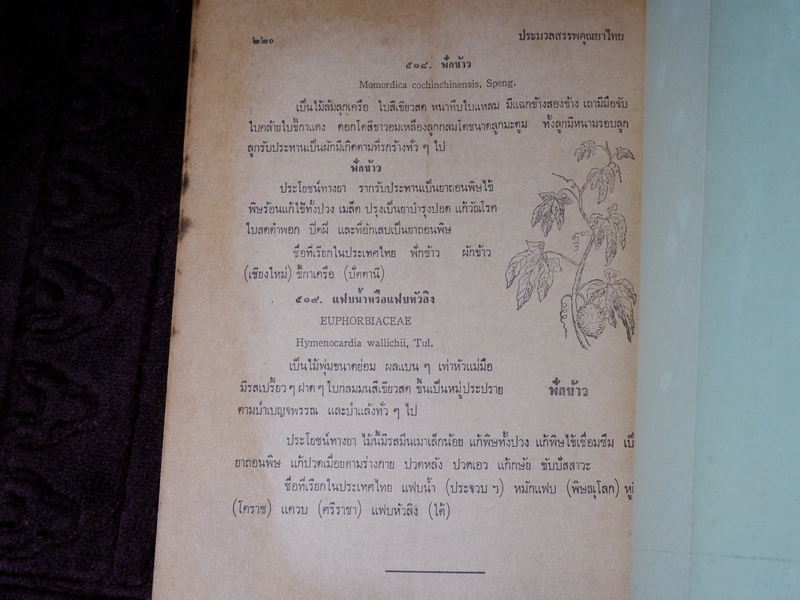 ๒๒๐ ประมวลสรรพคุณยาไทย
๕๑๘. ฟักข้าว
Momordica cochinchinensis, Speng.
เป็นไม้ล้มลุกเครือ ใบสีเขียวสด หนาทึบใบแหลม มีแฉกข้างสองข้าง เถามีมือจับ
ใบคล้ายใบขี้กาแดง ดอกโตสีขาวอมเหลืองลูกกลมโตขนาดลูกมะตูม ทั้งลูกมีหนามรอบลูก
ลูกรับประทานเป็นผักมีเกิดตามที่รกร้างทั่ว ๆ ไป
ฟักข้าว
ประโยชน์ทางยา รากรับประทานเป็นยาถอนพิษไข้
พิษร้อนแก้ไข้ทั้งปวง เมล็ด ปรุงเป็นยาบำรุงปอด แก้วัณโรค
ใบสดตำพอก ปิดฝี และที่อักเสบเป็นยาถอนพิษ
ชื่อที่เรียกในประเทศไทย ฟักข้าว ผักข้าว
(เชียงใหม่) ขี้กาเครือ (ปัตตานี)
๕๑๙. แฟบน้ำหรือแฟบหัวลิง
EUPHORBIACEAE
Hymenocardia wallichii, Tul.
เป็นไม้พุ่มขนาดย่อม ผลแบน ๆ เท่าหัวแม่มือ
มีรสเปรี้ยว ๆ ฝาด ๆ ใบกลมมนสีเขียวสด ขึ้นเป็นหมู่ประปราย
ตามป่าเบญจพรรณ และป่าแล้งทั่ว ๆ ไป
ฟักข้าว
ประโยชน์ทางยา ไม้นี้มีรสมึนเมาเล็กน้อย แก้พิษทั้งปวง แก้พิษไข้เชื่อมซึม เป็
ยาถอนพิษ แก้ปวดเมื่อยตามร่างกาย ปวดหลัง ปวดเอว แก้กษัย ขับปัสสาวะ
ชื่อที่เรียกในประเทศไทย แฟบน้ำ (ประจวบ ฯ) หมักแฟบ (พิษณุโลก) หู
(โคราช) แควบ (ศรีราชา) แฟบหัวลิง (ใต้)